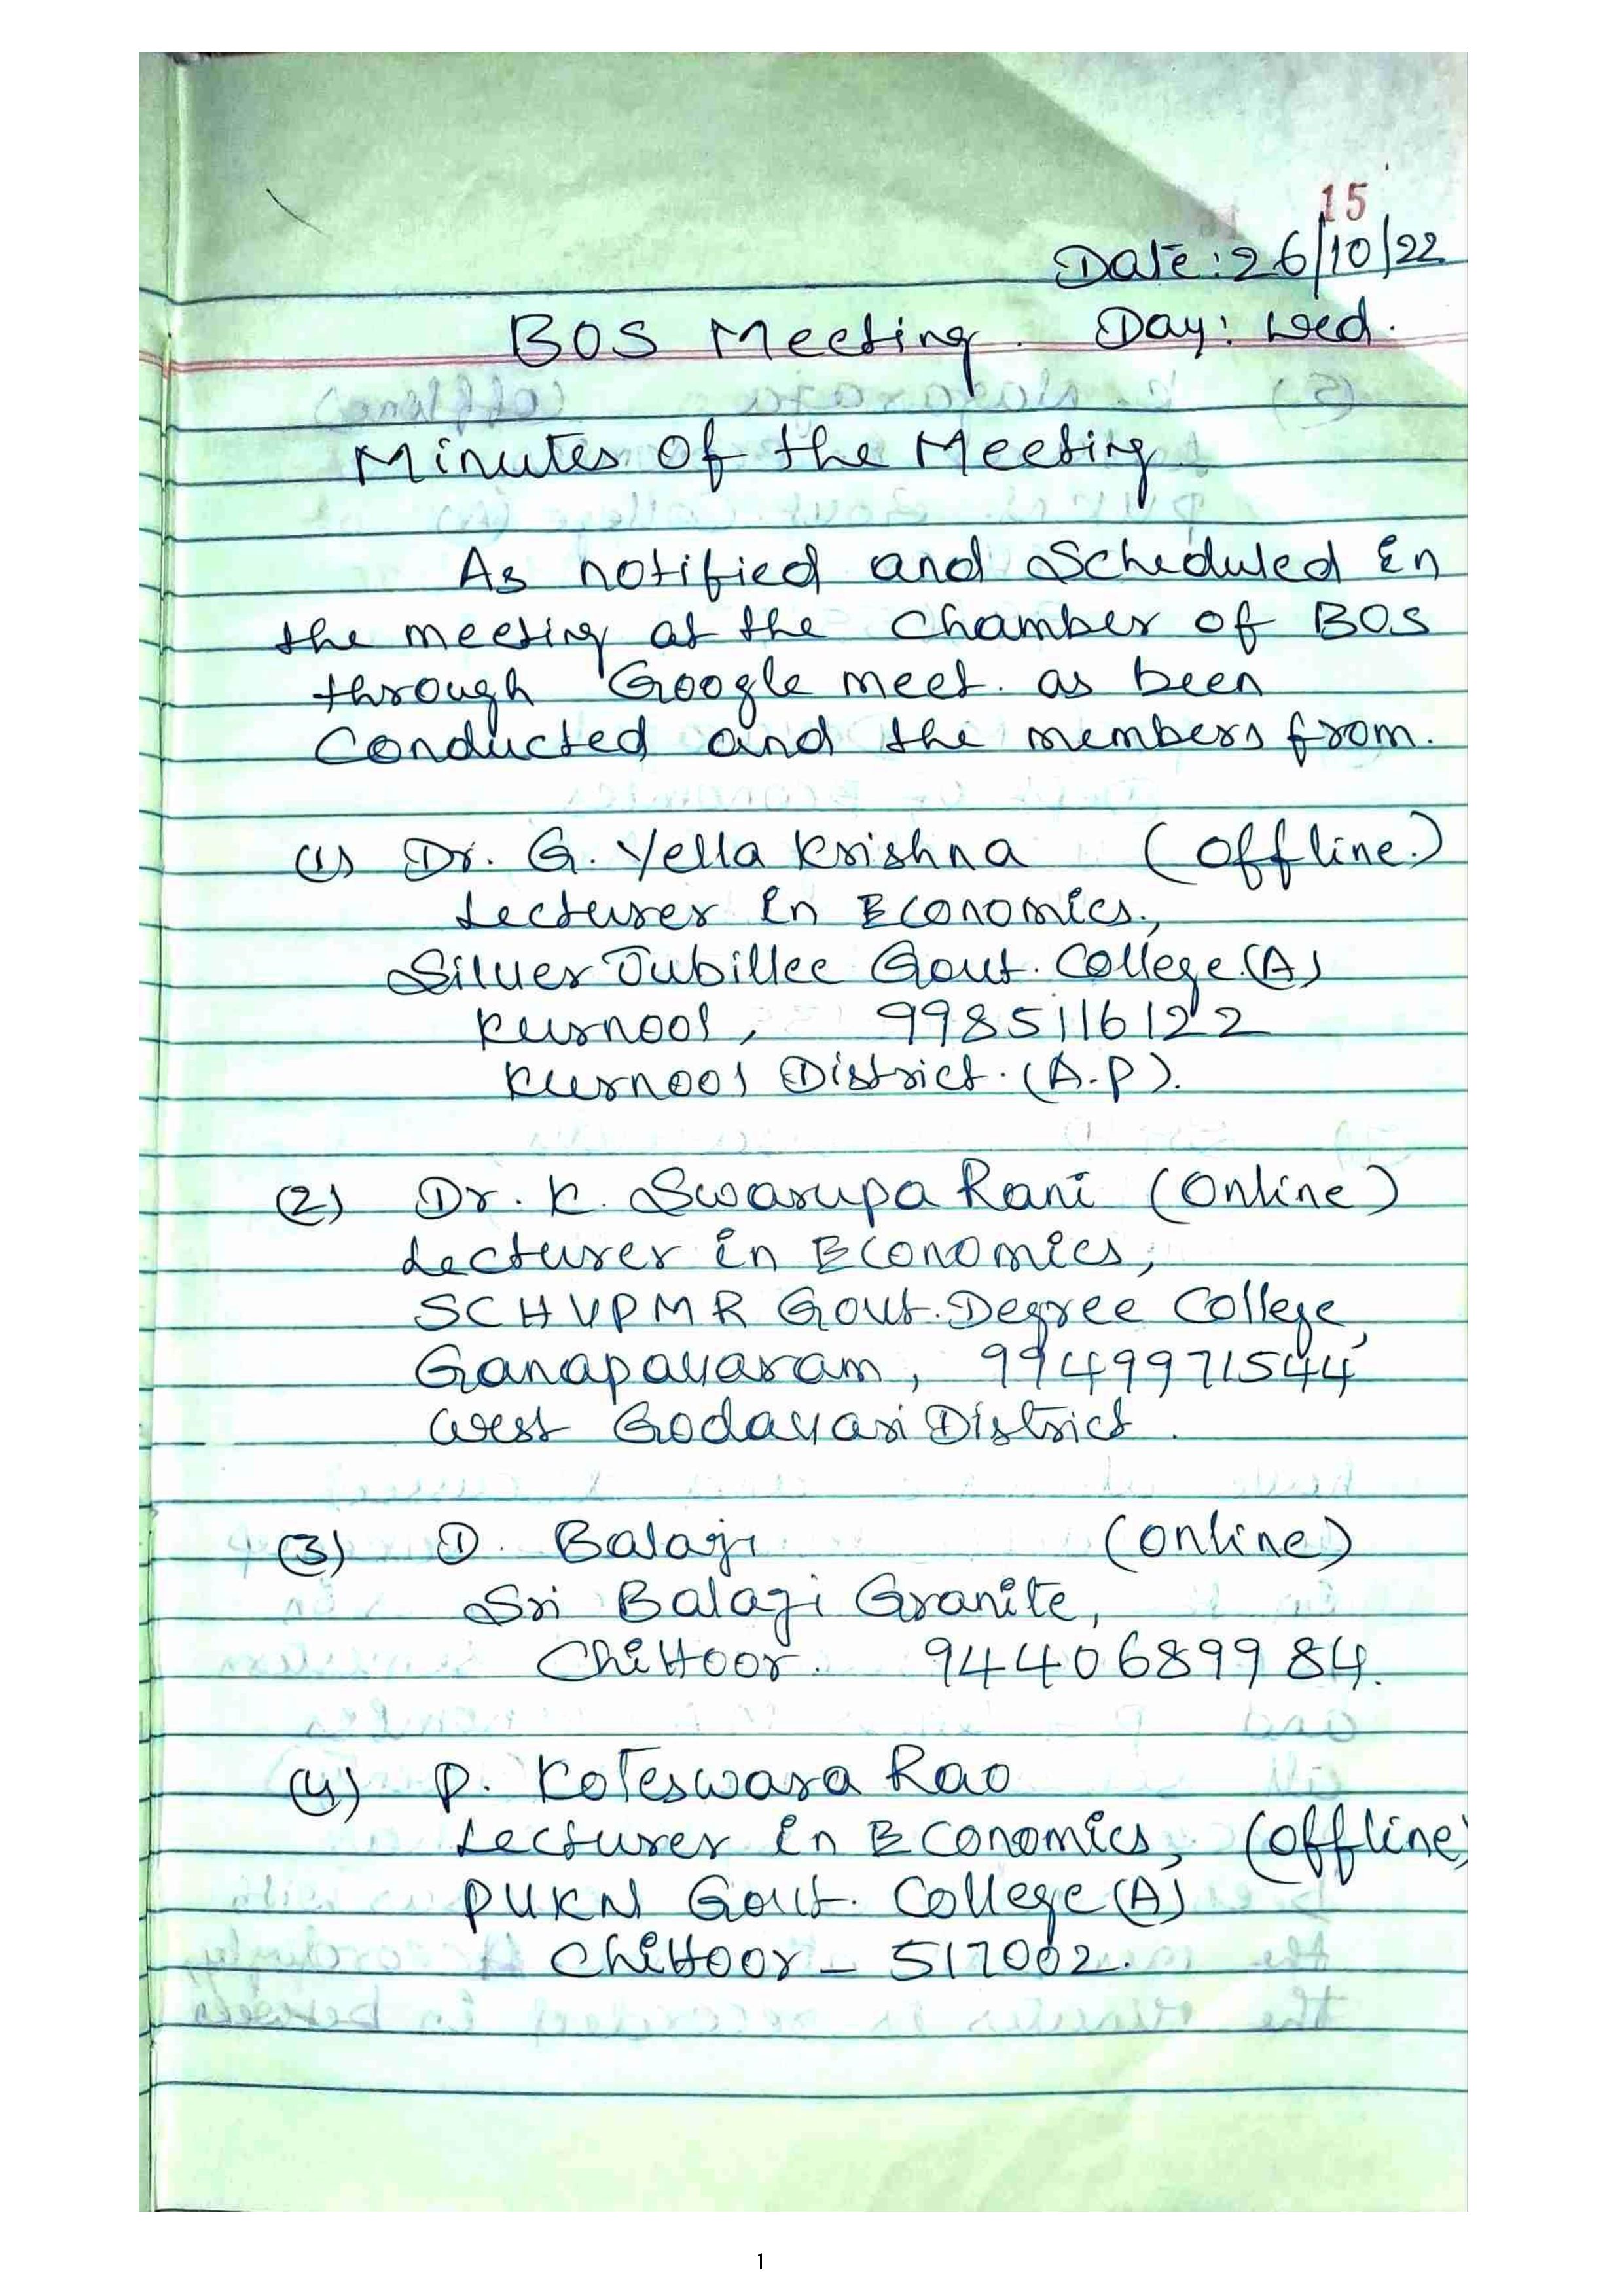 15
Date: 26/10/22
BOS Meeting. Day: Wed.
Minutes of the Meeting
As notified and Scheduled in
the meeting at the Chamber of BOS
through Google meet. as been
Conducted and the members from.
(1) Dr. G. Yella Krishna (Offline.)
Lecturer in Economics,
Silver Jubillee Govt. College (A)
Kurnool, 9985116122
Kurnool District. (A.P).
(2) Dr. K. Swarupa Rani (Online)
Lecturer in Economics,
SCHVPMR Govt. Degree College,
Ganapavaram, 9949971544
West Godavari District.
(3) D. Balaji (Online)
Sri Balaji Granite,
Chittoor. 9440689984.
(4) P. Koteswara Rao
Lecturer in Economics, (Offline)
PVKN Govt. College (A)
Chittoor - 517002.
1